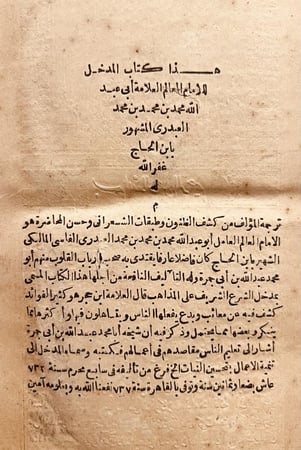 هـذا كتاب المدخل
للامام العالم العلامة أبى عبد
الله محمد بن محمد بن محمد
العبدرى المشهور
بابن الحاج
غفر الله
له
م
ترجمة المؤلف من كشف الظنون وطبقات الشعرانى وحسن المحاضرة هو
الامام العالم العامل أبو عبد الله محمد بن محمد بن محمد العبدرى الفاسى المالكى
الشهير بابن الحاج كان فاضلا عارفا يقتدى به صحب أرباب القلوب منهم أبو
محمد عبد الله بن أبى جمرة وله التآليف النافعة من أجلها هذا الكتاب المسمى
بمدخل الشرع الشريف على المذاهب قال العلامة ابن حجر هو كثير الفوائد
كشف فيه عن معائب وبدع يفعلها الناس ويتساهلون فيها وأكثرها مما
ينكر وبعضها مما يحتمل وذكر فيه أن شيخه أبا محمد عبد الله بن أبى جمرة
أشار الى تعليم الناس مقاصدهم فى أعمالهم فكتبه وسماه المدخل الى
تتمة الاعمال بتحسين النيات الخ فرغ من تأليفه فى سابع محرم سنة ٧٣٢
عاش بضعا وثمانين سنة وتوفى بالقاهرة سنة ٧٣٧ نفعنا الله به وبعلومه آمين